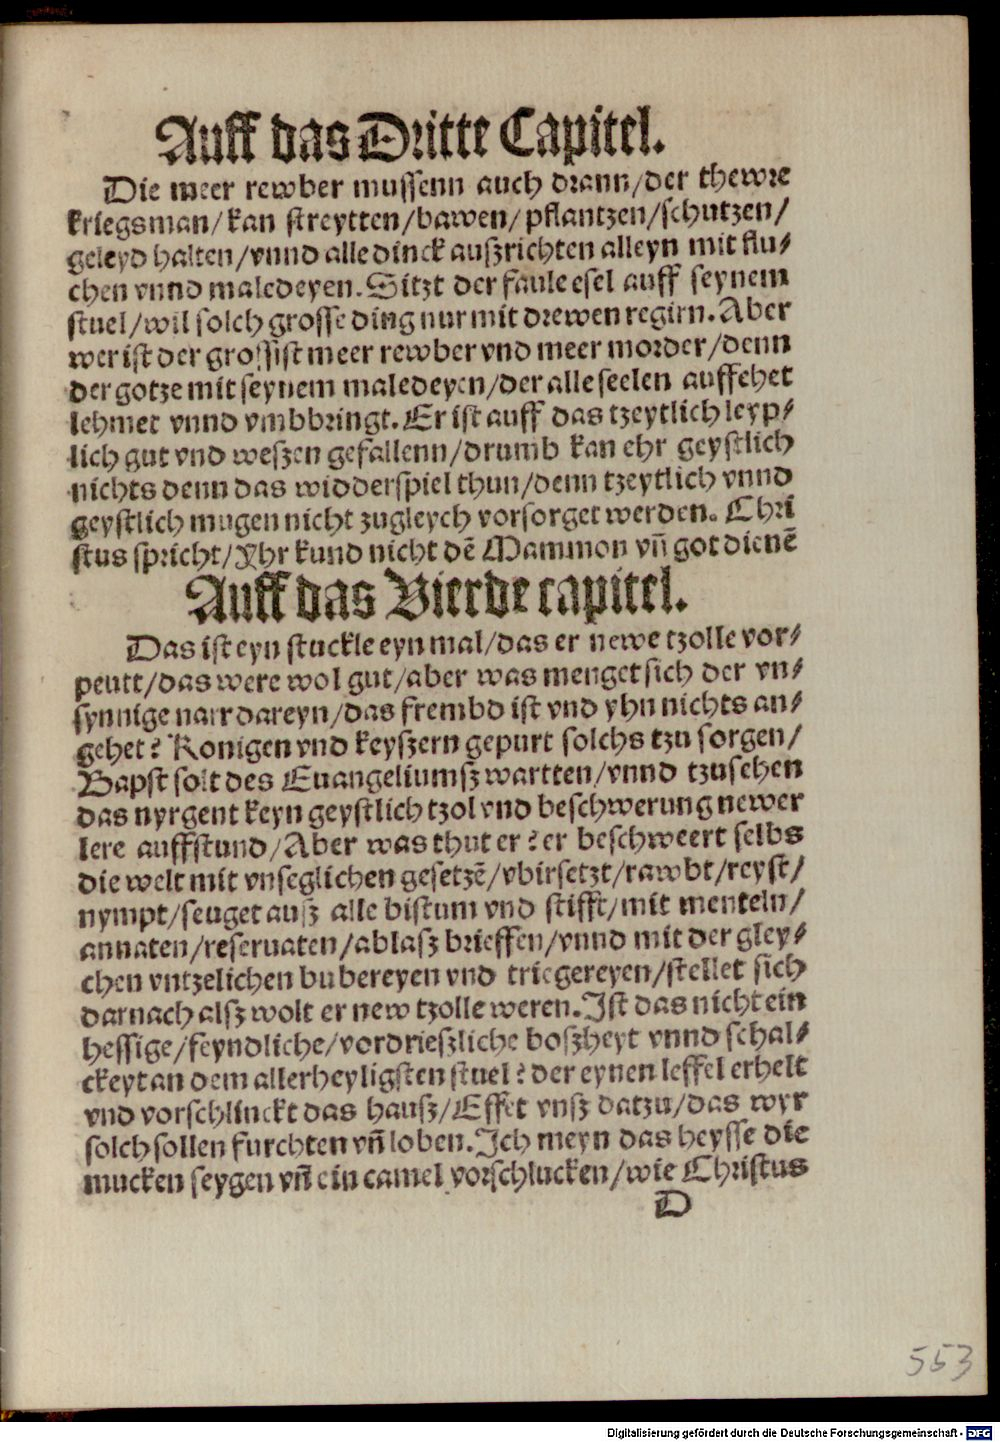 Auff das Dritte Capitel.
Die meer rewber mussenn auch drann/der thewre
kriegsman/kan streytten/bawen/pflantzen/schutzen/
geleyd halten/vnnd alle dinck auszrichten alleyn mit flu-
chen vnnd maledeyen. Sitzt der faule esel auff seynem
stuel/wil solch grosse ding nur mit drewen regirn. Aber
wer ist der grossist meer rewber vnd meer morder/denn
der gotze mit seynem maledeyen/der alle seelen auffehet
lehmet vnnd vmbbringt. Er ist auff das tzeytlich leyp-
lich gut vnd weszen gefallenn/drumb kan ehr geystlich
nichts denn das widderspiel thun/denn tzeytlich vnnd
geystlich mugen nicht zugleych vorsorget werden. Chri
stus spricht/Yhr kund nicht dē Mammon vn̄ got dienē
Auff das Vierde capitel.
Das ist eyn stuckle eyn mal/das er newe tzolle vor-
peutt/das were wol gut/aber was menget sich der vn-
synnige narr dareyn/das frembd ist vnd yhn nichts an-
gehet? Konigen vnd keyszern gepurt solchs tzu sorgen/
Bapst solt des Euangeliumsz wartten/vnnd tzusehen
das nyrgent keyn geystlich tzol vnd beschwerung newer
lere auffstund/Aber was thut er? er beschweert selbs
die welt mit vnseglichen gesetzē/vbirsetzt/rawbt/reyst/
nympt/seuget ausz alle bistum vnd stifft/mit menteln/
annaten/reseruaten/ablasz brieffen/vnnd mit der gley-
chen vntzelichen bubereyen vnd triegereyen/stellet sich
darnach alsz wolt er new tzolle weren. Ist das nicht ein
hessige/feyndliche/vordrieszliche boszheyt vnnd schal-
ckeyt an dem allerheyligsten stuel? der eynen leffel erhelt
vnd vorschlinckt das hausz/Effet vnsz datzu/das wyr
solch sollen furchten vn̄ loben. Ich meyn das heysse die
mucken seygen vn̄ ein camel vorschlucken/wie Christus
D
553
Digitalisierung gefördert durch die Deutsche Forschungsgemeinschaft - DFG